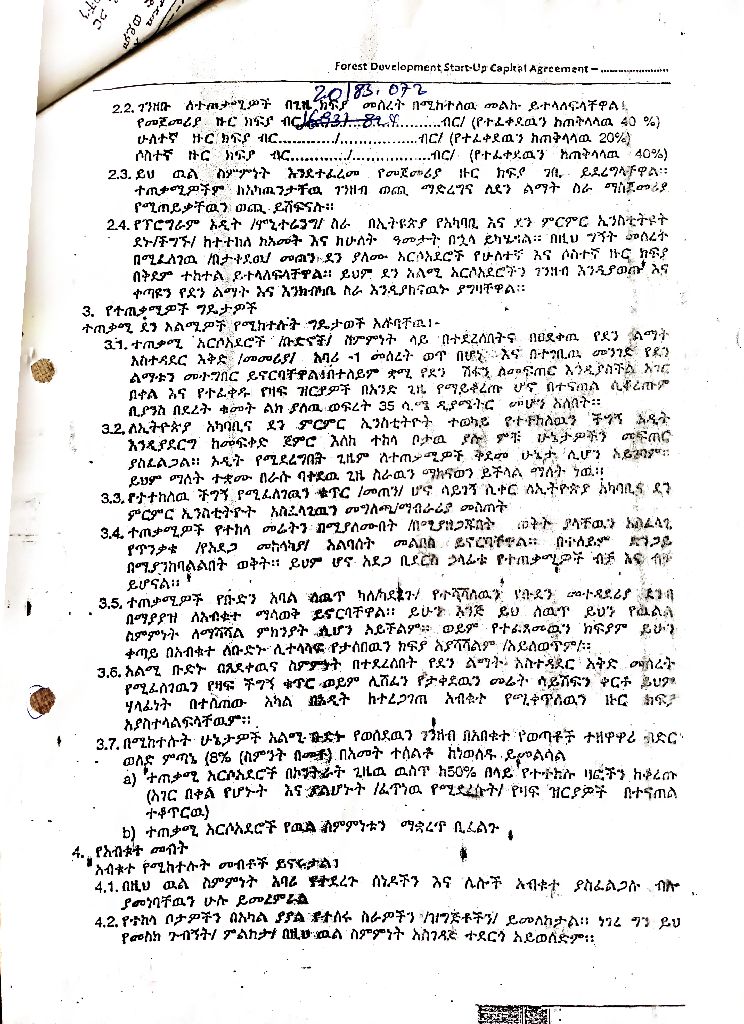 Forest Development Start-Up Capital Agreement – ........................
20/83.072
2.2. ገንዘቡ ለተጠቃሚዎች በጊዜ ክፍያ መሰረት በሚከተለዉ መልኩ ይተላለፍላቸዋል፤
የመጀመሪያ ዙር ክፍያ ብር ..............ብር/ (የተፈቀደዉን ከጠቅላላዉ 40 %)
ሁለተኛ ዙር ክፍያ ብር............../..................ብር/ (የተፈቀደዉን ከጠቅላላዉ 20%)
ሶስተኛ ዙር ክፍያ ብር............../..................ብር/ (የተፈቀደዉን ከጠቅላላዉ 40%)
2.3. ይህ ዉል ስምምነት እንደተፈረመ የመጀመሪያ ዙር ክፍያ ገቢ ይደረግላቸዋል።
ተጠቃሚዎችም ከአካዉንታቸዉ ገንዘብ ወጪ ማድረግና ለደን ልማት ስራ ማስጀመሪያ
የሚጠይቃቸዉን ወጪ ይሸፍናሉ።
2.4. የፕሮግራም ኦዲት /ሞኒተሪንግ/ ስራ በኢትዮጵያ የአካባቢ እና ደን ምርምር ኢንስቲትዩት
ደኑ/ችግኙ/ ከተተከለ ከአመት እና ከሁለት ዓመታት በኋላ ይካሄዳል። በዚህ ግኝት መሰረት
በሚፈለገዉ /በታቀደዉ/ መጠን ደን ያለሙ አርሶአደሮች የሁለተኛ እና ሶስተኛ ዙር ክፍያ
በቅደም ተከተል ይተላለፍላቸዋል። ይህም ደን አልሚ አርሶአደሮችን ገንዘብ እንዲያወጡ እና
ቀጣዩን የደን ልማት እና እንክብካቤ ስራ እንዲያከናዉኑ ያግዛቸዋል።
3. የተጠቃሚዎች ግዴታዎች
ተጠቃሚ ደን አልሚዎች የሚከተሉት ግዴታወች አሉባቸዉ፤-
3.1. ተጠቃሚ አርሶአደሮች /ቡድኖች/ ስምምነት ላይ በተደረሰበትና በፀደቀዉ የደን ልማት
አስተዳደር እቅድ /መመሪያ/ አባሪ -1 መሰረት ወጥ በሆነ እና በተገቢዉ መንገድ የደን
ልማቱን መተግበር ይኖርባቸዋል፤በተለይም ቋሚ የደን ሽፋን ለመፍጠር እንዲያስችል አገር
በቀል እና የተፈቀዱ የዛፍ ዝርያዎች በአንድ ጊዜ የማይቆረጡ ሆኖ በተናጠል ሲቆረጡም
ቢያንስ በደረት ቁመት ልክ ያለዉ ወፍረት 35 ሳ.ሜ ዲያሜትር መሆን አለበት።
3.2. ለኢትዮጵያ አካባቢና ደን ምርምር ኢንስቲትዮት ተወካይ የተተከለዉን ችግኝ ኦዲት
እንዲያደርግ ከመፍቀድ ጀምሮ እስከ ተከላ ቦታዉ ያሉ ምቹ ሁኔታዎችን መፍጠር
ያስፈልጋል። ኦዲት የሚደረግበት ጊዜም ለተጠቃሚዎች ቅድመ ሁኔታ ሊሆን አይገባም።
ይህም ማለት ተቋሙ በራሱ ባቀደዉ ጊዜ ስራዉን ማከናወን ይችላል ማለት ነዉ።
3.3. የተተከለዉ ችግኝ የሚፈለገዉን ቁጥር /መጠን/ ሆኖ ሳይገኝ ሲቀር ለኢትዮጵያ አካባቢና ደን
ምርምር ኢንስቲትዮት አስፈላጊዉን መግለጫ/ማብራሪያ መስጠት
3.4. ተጠቃሚዎች የተከላ መሬትን በሚያለሙበት /በሚያዘጋጁበት ወቅት ያላቸዉን አስፈላጊ
የጥንቃቄ /የአደጋ መከላከያ/ አልባሳት መልበስ ይኖርባቸዋል። በተለይም ድንጋይ
በሚያንከባልልበት ወቅት። ይህም ሆኖ አደጋ ቢደርስ ኃላፊቱ የተጠቃሚዎች ብቻ እና ብቻ
ይሆናል።
3.5. ተጠቃሚዎች የቡድን አባል ለዉጥ ካለ/ካደረጉ/ የተሻሻለዉን የቡድን መተዳደሪያ ደንብ
በማያያዝ ለአብቁተ ማሳወቅ ይኖርባቸዋል። ይሁን እንጅ ይህ ለዉጥ ይህን የዉል
ስምምነት ለማሻሻል ምክንያት ሊሆን አይችልም። ወይም የተፈጸመዉን ክፍያም ይሁን
ቀጣይ በአብቁተ ለቡድኑ ሊተላለፍ የታሰበዉን ክፍያ አያሻሻልም /አይለወጥም/።
3.6. አልሚ ቡድኑ በጸደቀዉና ስምምነት በተደረሰበት የደን ልማት አስተዳደር እቅድ መሰረት
የሚፈለገዉን የዛፍ ችግኝ ቁጥር ወይም ሊሸፈን የታቀደዉን መሬት ሳይሸፍን ቀርቶ ይህም
ሃላፊነት በተሰጠው አካል በኦዲት ከተረጋገጠ አብቁተ የሚቀጥለዉን ዙር ክፍያ
አያስተላልፍላቸዉም።
3.7. በሚከተሉት ሁኔታዎች አልሚ ቡድኑ የወሰደዉን ገንዘብ በአበቁተ የወጣቶች ተዘዋዋሪ ብድር
ወለድ ምጣኔ (8% (ስምንት በመቶ) በአመት ተሰልቶ ከነወለዱ ይመልሳል
a) ተጠቃሚ አርሶአደሮች በኮንትራት ጊዜዉ ዉስጥ ከ50% በላይ የተተከሉ ዛፎችን ከቆረጡ
(አገር በቀል የሆኑት እና ያልሆኑት /ፈጥነዉ የሚደረሱት/ የዛፍ ዝርያዎች በተናጠል
ተቆጥርዉ)
b) ተጠቃሚ አርሶአደሮች የዉል ስምምነቱን ማቋረጥ ቢፈልጉ
4. የአብቁተ መብት
አብቁተ የሚከተሉት መብቶች ይኖሩታል፤
4.1. በዚህ ዉል ስምምነት አባሪ የተደረጉ ሰነዶችን እና ሌሎች አብቁተ ያስፈልጋሉ ብሎ
ያመነባቸዉን ሁሉ ይመረምራል
4.2. የተከላ ቦታዎችን በአካል ያያል የተሰሩ ስራዎችን /ዝግጅቶችን/ ይመለከታል። ነገረ ግን ይህ
የመስክ ጉብኝት/ ምልከታ/ በዚህ ዉል ስምምነት እስገዳጅ ተደርጎ አይወሰድም።